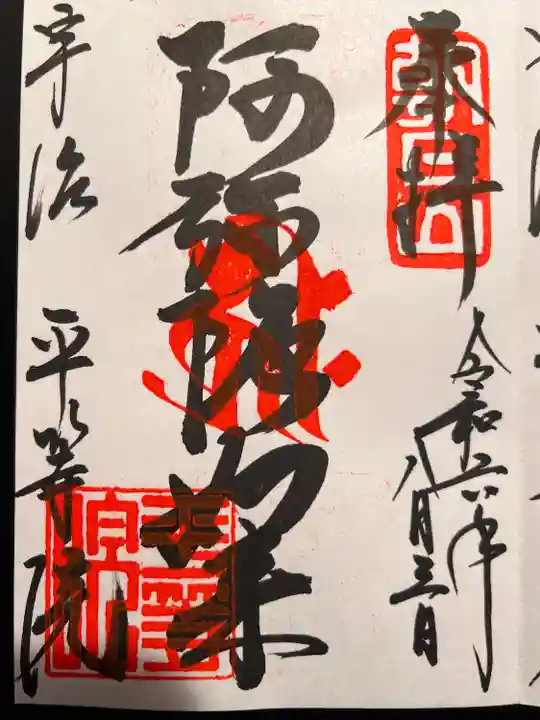 奉拝
令和六年
八月三日
阿弥陀如来
宇治 平等院